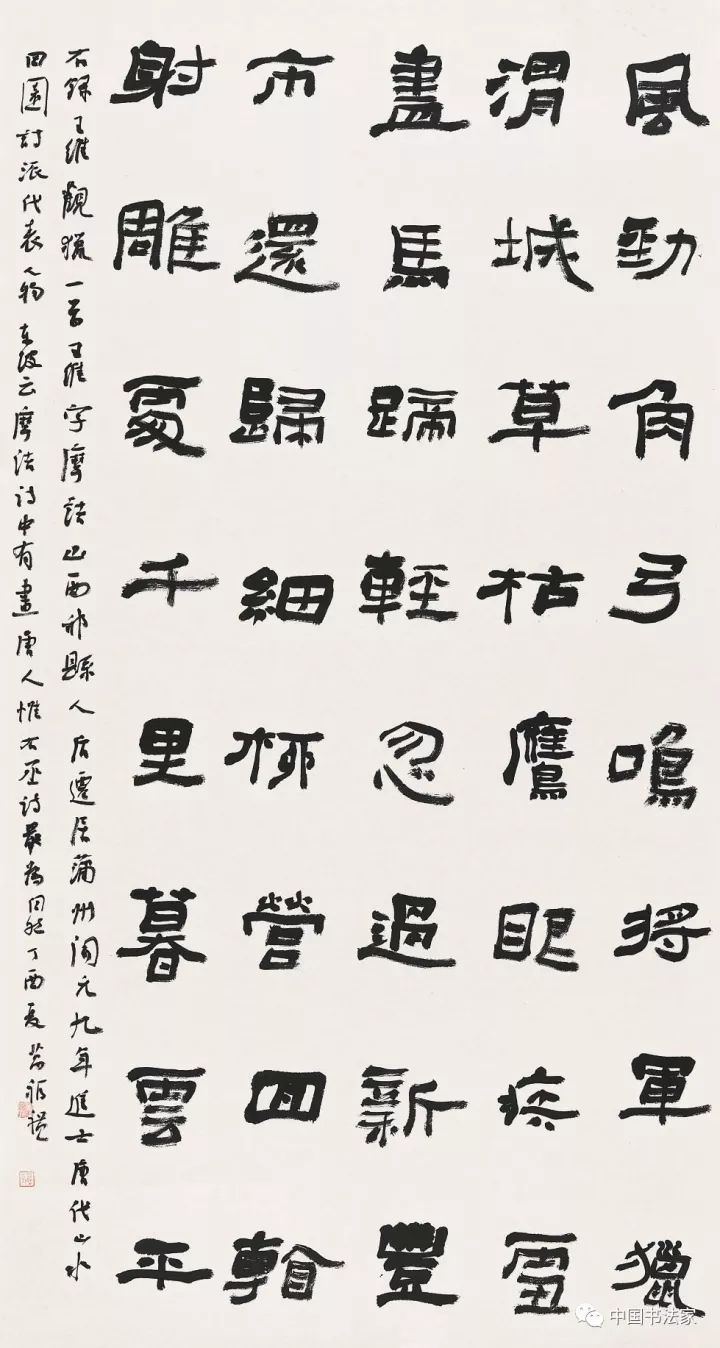 風勁角弓鳴將軍獵
渭城草枯鷹眼疾雪
盡馬蹄輕忽過新豐
市還歸細柳營回看
射雕處千里暮雲平
右録王維觀獵一首王維字摩詰山西祁縣人后遷居蒲州開元九年進士唐代山水
田園詩派代表人物東坡云摩詰詩中有畫唐人惟右丞詩最為同然丁酉夏
中国书法家